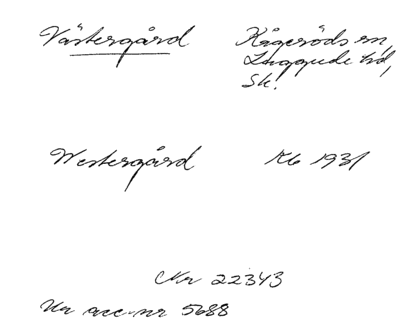 Västergård Kågeröds sn,
Luggude hd,
Sk.
Westergård Kb 1931
Nr 22343
Ur acc.nr 5688